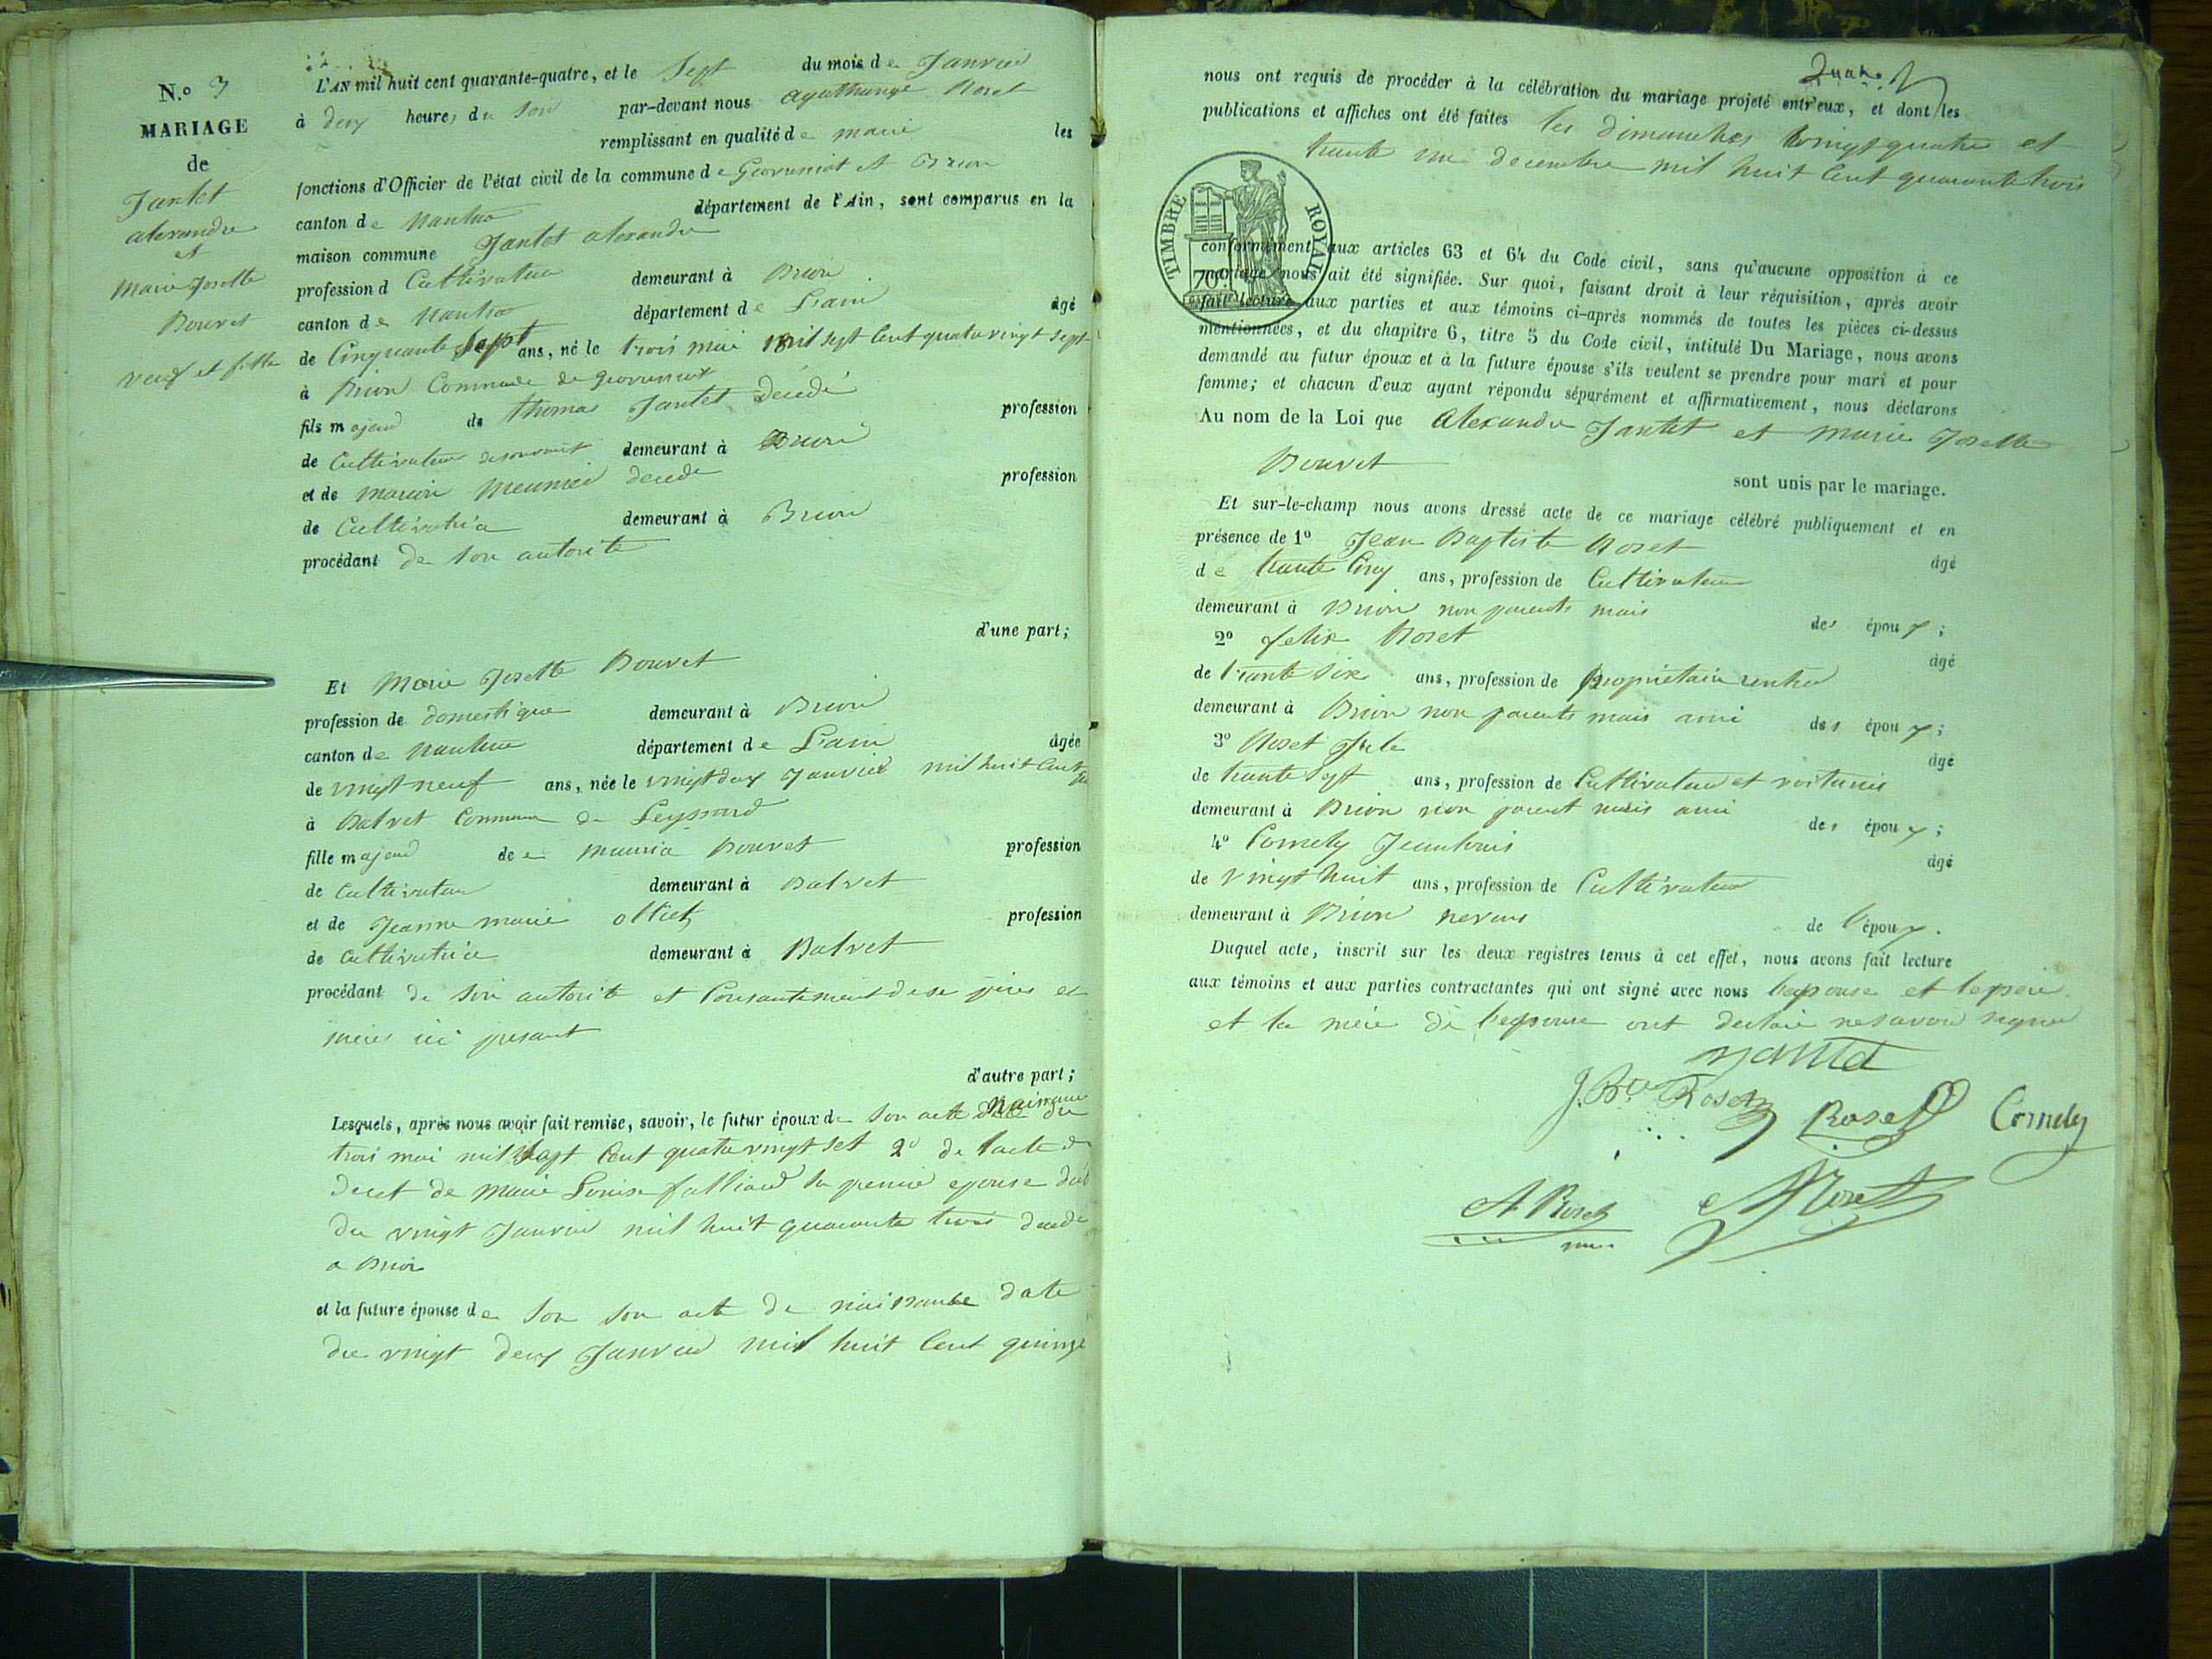 N.o 3
MARIAGE
de
Jantet
alexandre
et
Marie Josette
Bouvet
veuf et fille
L'AN mil huit cent quarante-quatre, et le Sept du mois de Janvier
à deux heures du soir par-devant nous agathange Roset
remplissant en qualité de maire les
fonctions d'Officier de l'état civil de la commune de Geovressiat et Brion
canton de Nantua département de l'Ain, sont comparus en la
maison commune Jantet alexandre
profession d Cultivateur demeurant à Brion
canton de Nantua département de L'ain âgé
de Cinquante Sept ans, né le trois mai mil sept cent quatre vingt sept
à Brion Commune de
fils majeur de thomas Jantet Décédé profession
de Cultivateur demeurant à Brion
et de marion Meunier décédé profession
de Cultivatrice demeurant à Brion
procédant de son autorité
d'une part;
Et Marie Josette Bouvet
profession de domestique demeurant à Brion
canton de Nantua département de L'ain âgée
de vingt neuf ans, née le vingt deux Janvier mil huit cent
à Balvet Commune de Leyssard
fille majeur de Bouvet profession
de Cultivateur demeurant à Balvet
et de Jeanne marie profession
de Cultivatrice demeurant à Balvet
procédant de son autorité et Consantement de se père et
mère ici présant
d'autre part;
Lesquels, après nous avoir fait remise, savoir, le futur époux de son acte du
trois mai mil sept Cent quatre vingt set 2o de l'acte de
decet de Marie Louise falliard sa épouse
du vingt Janvier mil huit quarante trois
a Brion
et la future épouse de son son acte de naissance date
du vingt deux Janvier mil huit Cent quinze
nous ont requis de procéder à la célébration du mariage projeté entr'eux, et dont les
publications et affiches ont été faites les dimanches vingt quatre et
trente un decembre mil huit Cent quarante trois
TIMBRE ROYAL
70c
conformément aux articles 63 et 64 du Code civil, sans qu'aucune opposition à ce
mariage nous ait été signifiée. Sur quoi, faisant droit à leur réquisition, après avoir
fait lecture aux parties et aux témoins ci-après nommés de toutes les pièces ci-dessus
mentionnées, et du chapitre 6, titre 5 du Code civil, intitulé Du Mariage, nous avons
demandé au futur époux et à la future épouse s'ils veulent se prendre pour mari et pour
femme; et chacun d'eux ayant répondu séparément et affirmativement, nous déclarons
Au nom de la Loi que Alexandre Jantet et marie Josette
Bouvet
sont unis par le mariage.
Et sur-le-champ nous avons dressé acte de ce mariage célébré publiquement et en
présence de 1o Jean Baptiste Roset âgé
de trante Cinq ans, profession de Cultivateur
demeurant à Brion non parents mais des époux;
2o felix Roset âgé
de trante six ans, profession de Propriétaire rentier
demeurant à Brion non parents mais ami des époux;
3o Roset Jule âgé
de trante sept ans, profession de Cultivateur et voiturier
demeurant à Brion non parent mais ami des époux;
4o Cornely Jeanlouis âgé
de vingt huit ans, profession de Cultivateur
demeurant à Brion neveux de l'époux.
Duquel acte, inscrit sur les deux registres tenus à cet effet, nous avons fait lecture
aux témoins et aux parties contractantes qui ont signé avec nous et le père
et la mère de ont declaré ne savoir signer
J. Bte Roset
Roset
Cornely
A Roset
Roset